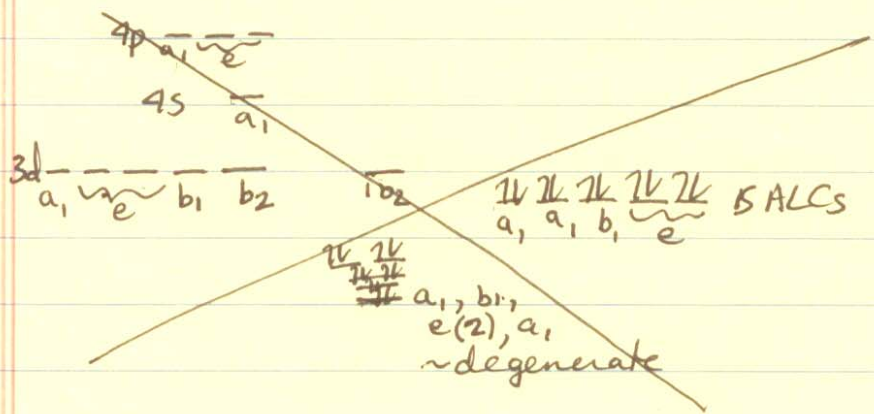 4p a₁ e
4s a₁
3d a₁ e b₁ b₂
1b₂
a₁ a₁ b₁ e SALCs
a₁, b₁,
e(2), a₁
~degenerate